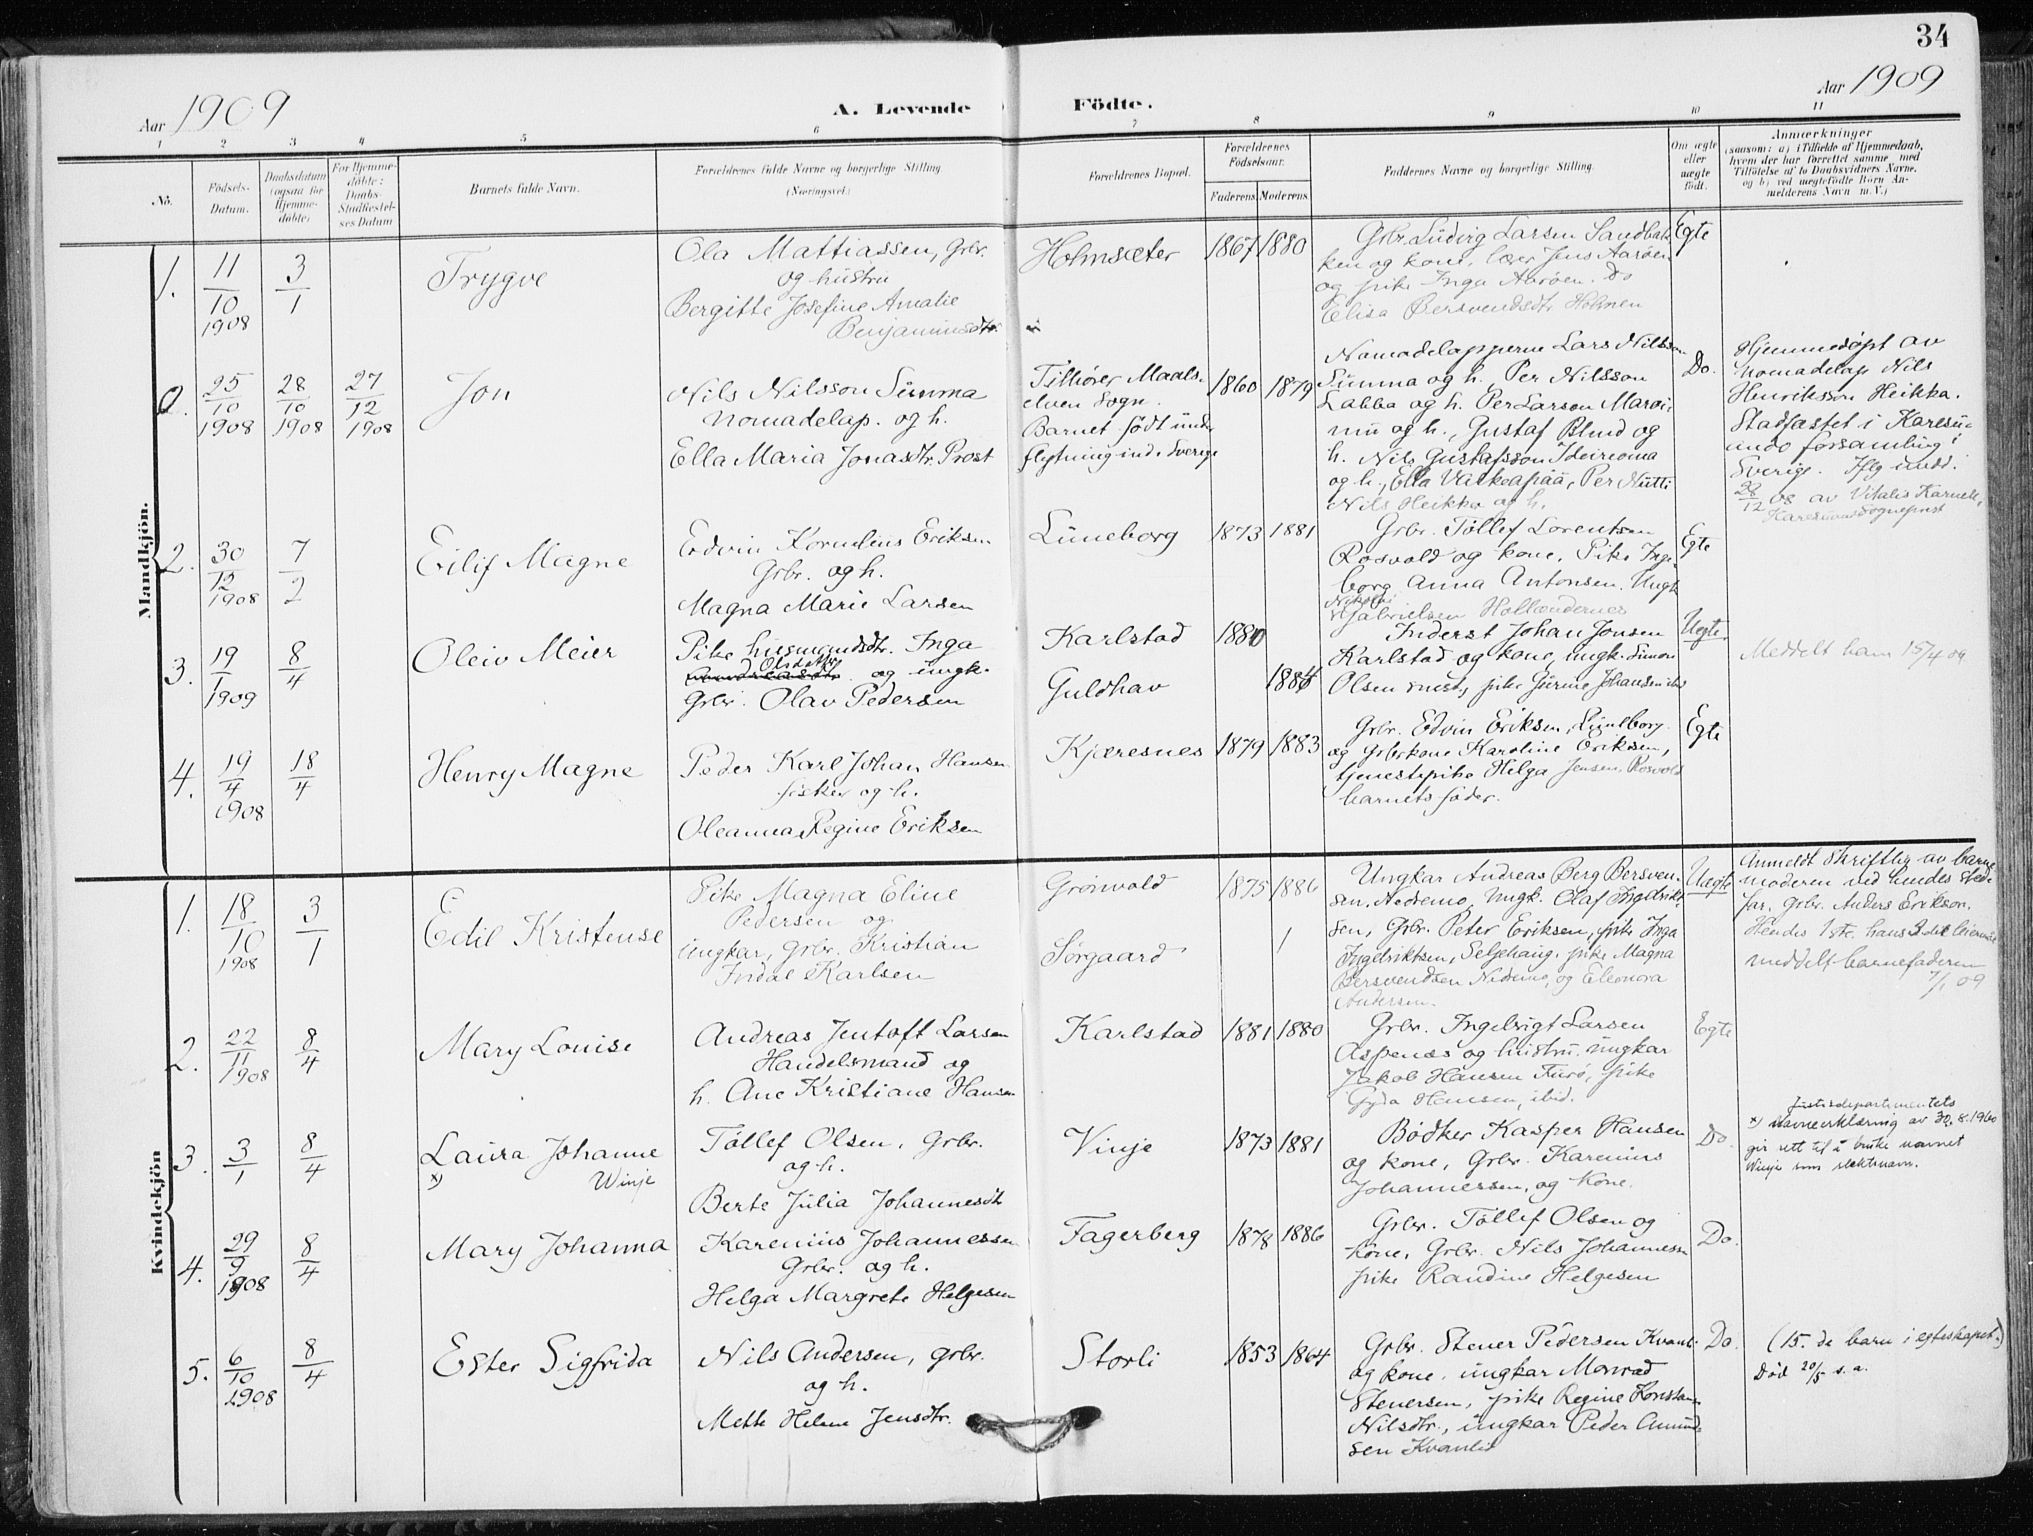 34
Aar 1909
A. Levende Födte.
Aar 1909
1 2 3 4 5 6 7 8 9 10 11
No.
Födsels-
Datum.
Daabsdatum
(ogsaa for
Hjemme-
döbte)
For Hjemme-
döbte:
Daabs-
Stadfæstel-
ses Datum
Barnets fulde Navn.
Forældrenes fulde Navne og borgerlige Stilling.
(Næringsvei.)
Forældrenes Bopæl.
Forældrenes
Födselsaar.
Faderens
Moderens
Faddernes Navne og borgerlige Stilling.
Om ægte
eller
uægte
födt.
Anmærkninger
(saasom: a) i Tilfælde af Hjemmedaab,
hvem der har forrettet samme, med
Tilföielse af to Daabsvidners Navne,
og b) ved uægtefödte Börn An-
melderens Navn m. V.)
Mandkjön.
1.
11/10 1908
3/1
Trygve
Ola Mattiassen, Grbr.
og hustru
Bergitte Josefine Amalie
Benjaminsdtr.
Holmsæter
1867 1880
Grbr. Ludvig Larsen Sandbak-
ken og kone, lærer Jens Aarøen
og pike Inga Aarøen. Do
Elisa Bersvendsdtr. Holmen
Egte
0.
25/10 1908
28/10 1908
27/12 1908
Jon
Nils Nilsson Summa
nomadelap. og h.
Ella Maria Jonasdtr. Prost
Tilhører Maals-
elven Sogn.
Barnet født under
flytning ind i Sverige
1860 1879
Nomadelapperne Lars Nilsson
Summa og h. Per Nilsson
Labba og h. Per Larson Maroi-
mu og h., Gustaf Blind og
h. Nils Gustafsson
og h., Ella Valkeapää, Per Nutti
Nils Heikka og h.
Do.
Hjemmedøpt av
nomadelap Nils
Henriksson Heikka.
Stadfæstet i Karesu-
ando forsamling i
Sverige. Iflg. medd.
28/12 08 av Vitalis Karnell,
Karesuando sogneprest
2.
30/12 1908
7/2
Eilif Magne
Edvin Kornelius Eriksen
Grbr. og h.
Magna Marie Larsen
Luneborg
1873 1881
Grbr. Tollef Lorentsen
Rosvold og kone, Pike Inge-
borg Anna Antonsen. Ungk.
Nikolai
Gabrielsen Hollændernes
Egte
3.
19/1 1909
8/4
Oleiv Meier
Pike husmandsdtr. Inga
Olsdatter og ungk.
Grbr. Olav Pedersen
Karlstad
Guldhav
1880
1884
Inderst Johan Jonsen
Karlstad og kone, ungk. Simon
Olsen, pike Jørine Johansen ibid
Uegte.
Meddelt ham 15/4 09
4.
19/4 1908
18/4
Henry Magne
Peder Karl Johan Hansen
fisker og h.
Oleanna Regine Eriksen
Kjæresnes
1879 1883
Grbr. Edvin Eriksen, Luneborg
og Grbrkone Karoline Eriksen,
tjenestepike Helga Jensen, Rosvold
barnets fader.
Egte
Kvindekjön
1.
18/10 1908
3/1
Edil Kristense
Pike Magna Eline
Pedersen og
ungkar, grbr. Kristian
Indal Karlsen
Grönvold
Sørgaard
1875 1886
Ungkar Andreas Berg Bersven-
sen, Nedremo, Ungk. Olaf Ingebrikt-
sen, Grbr. Peter Eriksen, pike Inga
Ingebriktsen, Seljehaug, pike Magna
Bersvendsen Nedremo, og Eleonora
Andersen.
Uegte
Anmeldt skriftlig av barne-
moderen ved hendes sted-
far, grbr. Anders Erikson.
Hendes 1ste hans 3die leiermaal
meddelt barnefaderen
7/1 09
2.
22/11 1908
8/4
Mary Louise
Andreas Jentoft Larsen
Handelsmand og
h. Ane Kristiane Hansen
Karlstad
1881 1880
Grbr. Ingebrigt Larsen
Aspenes og hustru. ungkar
Jakob Hansen Furö, pike
Gyda Hansen, ibid.
Egte
3.
3/1
8/4
Laura Johanne
x) Winje
Tollef Olsen, Grbr.
og h.
Berte Julia Johannesdtr
Vinje
1873 1881
Bödker Kasper Hansen
og kone, Grbr. Karenius
Johannessen, og kone.
Do.
Justisdepartementets
x) navneerklæring av 30.8.1960
gir rett til å bruke navnet
Winje som slektsnavn.
4.
29/9 1908
8/4
Mary Johanna
Karenius Johannessen
Grbr. og h.
Helga Margrete Helgesen
Fagerberg
1878 1886
Grbr. Tollef Olsen og
kone, Grbr. Nils Johannesen
pike Randine Helgesen
Do.
5.
6/10 1908
8/4
Ester Sigfrida
Nils Andersen, grbr.
og h.
Mette Helene Jensdtr.
Storli
1853 1864
Grbr. Stener Pedersen Kvanli
og kone, ungkar Monrad
Stenersen, pike Regine Konstan
Nilsdtr., ungkar Peder Amund-
sen Kvanlid
Do.
(15. de barn i egteskapet.)
Død 20/5 s.a.